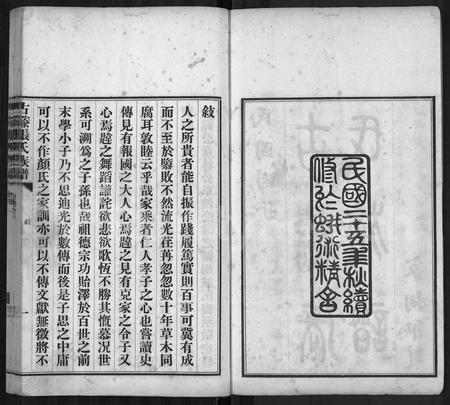 民國二十五年秋續
修於蛾術精舍
敍
人之所貴者能自振作踐履篤實則百事可冀有成
而不至於隳敗不然流光荏苒忽忽數十年草木同
腐耳敦睦云乎哉家乘者仁人孝子之心也嘗讀史
傳見有報國之大人心焉韙之見有克家之令子又
心焉韙之舞蹈讙詫悲欲歌恆不勝其慨慕況世
系可溯爲之子孫也哉祖德宗功貽澤於百世之前
末學小子乃不思迪光於數傳而後是子思之中庸
可以不作顏氏之家訓亦可以不傳文獻無徵將不
張氏族譜
敍
一